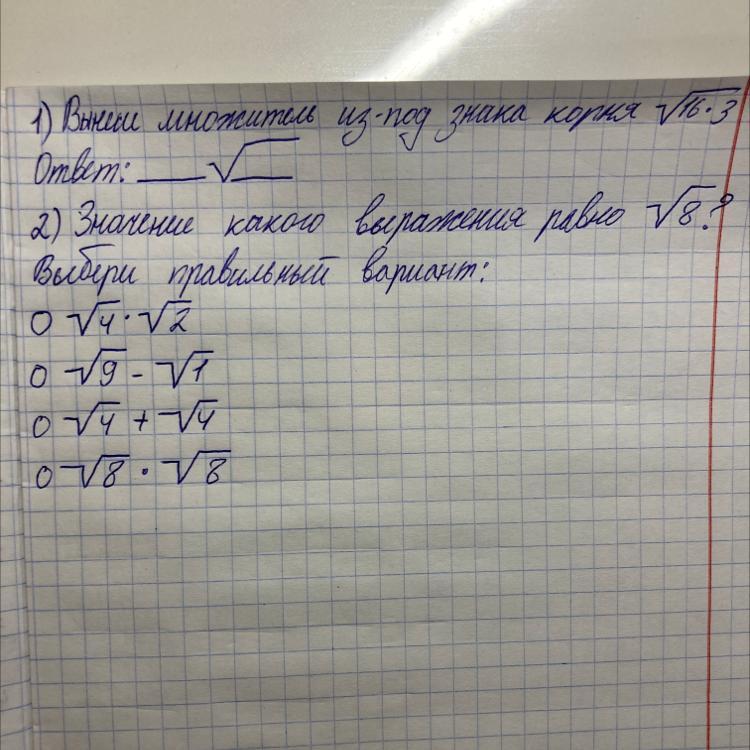 1) Вынеси множитель из-под знака корня √16·3
Ответ: ___√___
2) Значение какого выражения равно √8?
Выбери правильный вариант:
○ √4·√2
○ √9 - √1
○ √4 + √4
○ √8 · √8